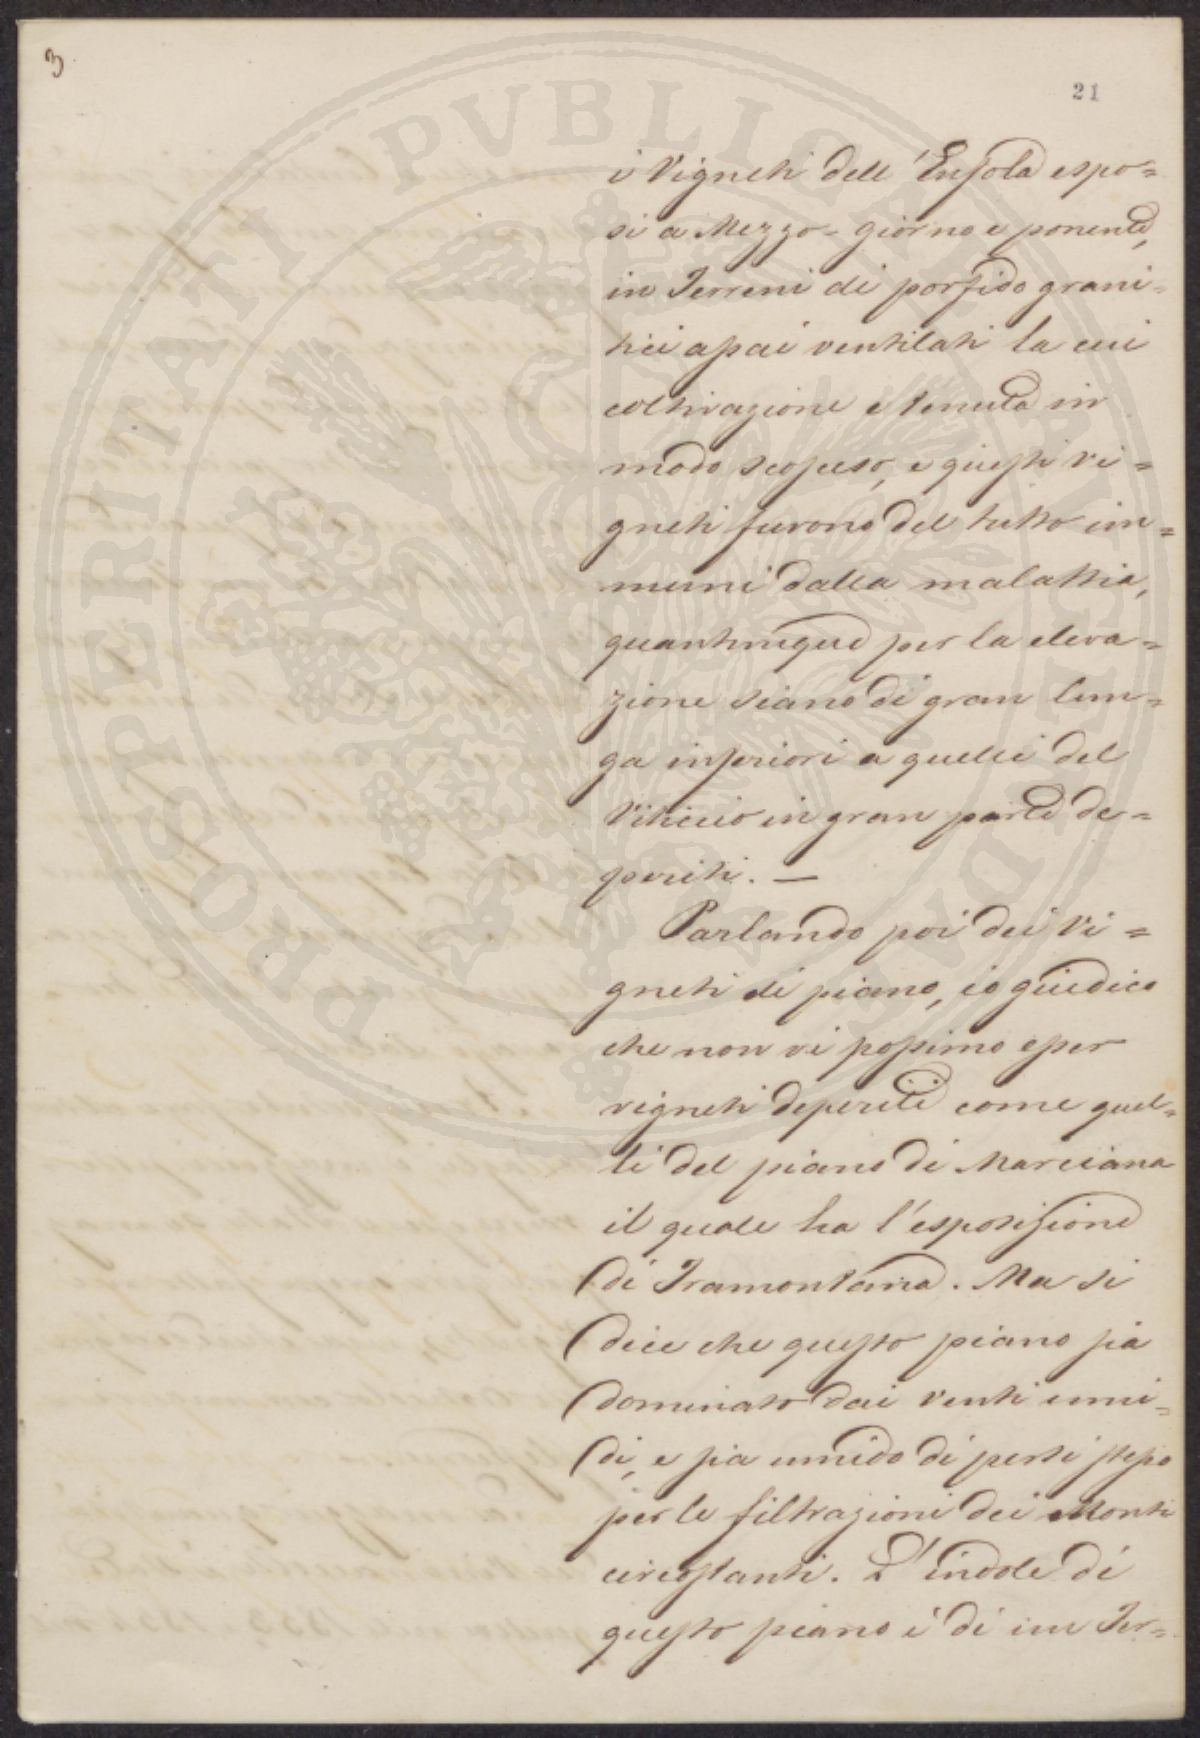 3
21
i Vigneti dell'Ensola espo=
si a Mezzo=giorno e ponente,
in Terreni di porfido grani=
tici assai ventilati la cui
coltivazione e tenuta in
modo scosceso, e questi vi=
gneti furono del tutto im=
muni dalla malattia,
quantunque per la eleva=
zione siano di gran lun=
ga inferiori a quelli del
Viticcio in gran parte de=
periti. —
Parlando poi dei Vi=
gneti di piano, io giudico
che non vi possino esser
vigneti deperiti come quel=
li del piano di Marciana
il quale ha l'esposisione
di Tramontana. Ma si
dice che questo piano sia
dominato dai venti umi=
di, e sia umido di per se stesso
per le filtrazioni dei Monti
circostanti. L'indole di
questo piano è di un Ter=
PROSPERITATI PVBLICAE AVGENDAE